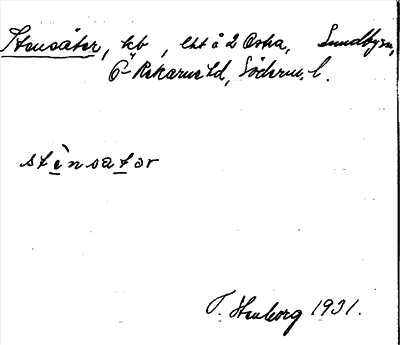 Stensäter, kb, Lht å 2 Östra, Sundbyson,
Ö-Rekarne hd, Söderm. l.
stènsätər
T. Stenborg 1931.